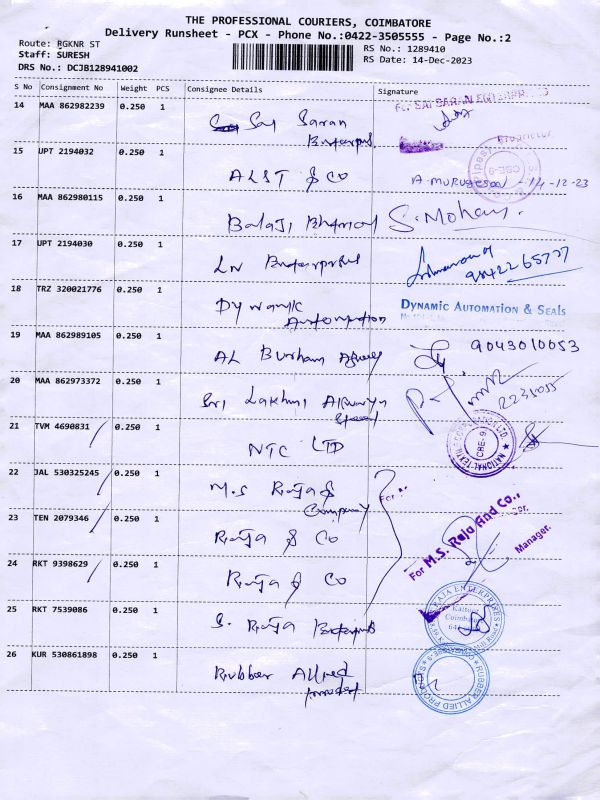 THE PROFESSIONAL COURIERS, COIMBATORE
Delivery Runsheet - PCX - Phone No.:0422-3505555 - Page No.:2
Route: RGKNR ST
RS No.: 1289410
Staff: SURESH
RS Date: 14-Dec-2023
DRS No.: DCJB128941002
S No Consignment No Weight PCS Consignee Details Signature
14 MAA 862982239 0.250 1 Sai Saran
15 UPT 2194032 0.250 1 ALST & CO A. MURUGESAN -14-12-23
16 MAA 862980115 0.250 1 Balaji S. Mohan.
17 UPT 2194030 0.250 1 LN
18 TRZ 320021776 0.250 1 Dynamic
Automation
DYNAMIC AUTOMATION & SEALS
19 MAA 862989105 0.250 1 AL Burham 9043010053
20 MAA 862973372 0.250 1 Sri Lakshmi
21 TVM 4690831 0.250 1 NTC LTD
CBE-9
22 JAL 530325245 0.250 1 M.S Raja &
Company
For M.S. Raja And Co.,
Manager.
23 TEN 2079346 0.250 1 Raja & Co
24 RKT 9398629 0.250 1 Raja & Co
25 RKT 7539086 0.250 1 S. Raja
RAJA ENTERPRISES
26 KUR 530861898 0.250 1 Rubber Allied
RUBBER ALLIED PRODUCTS